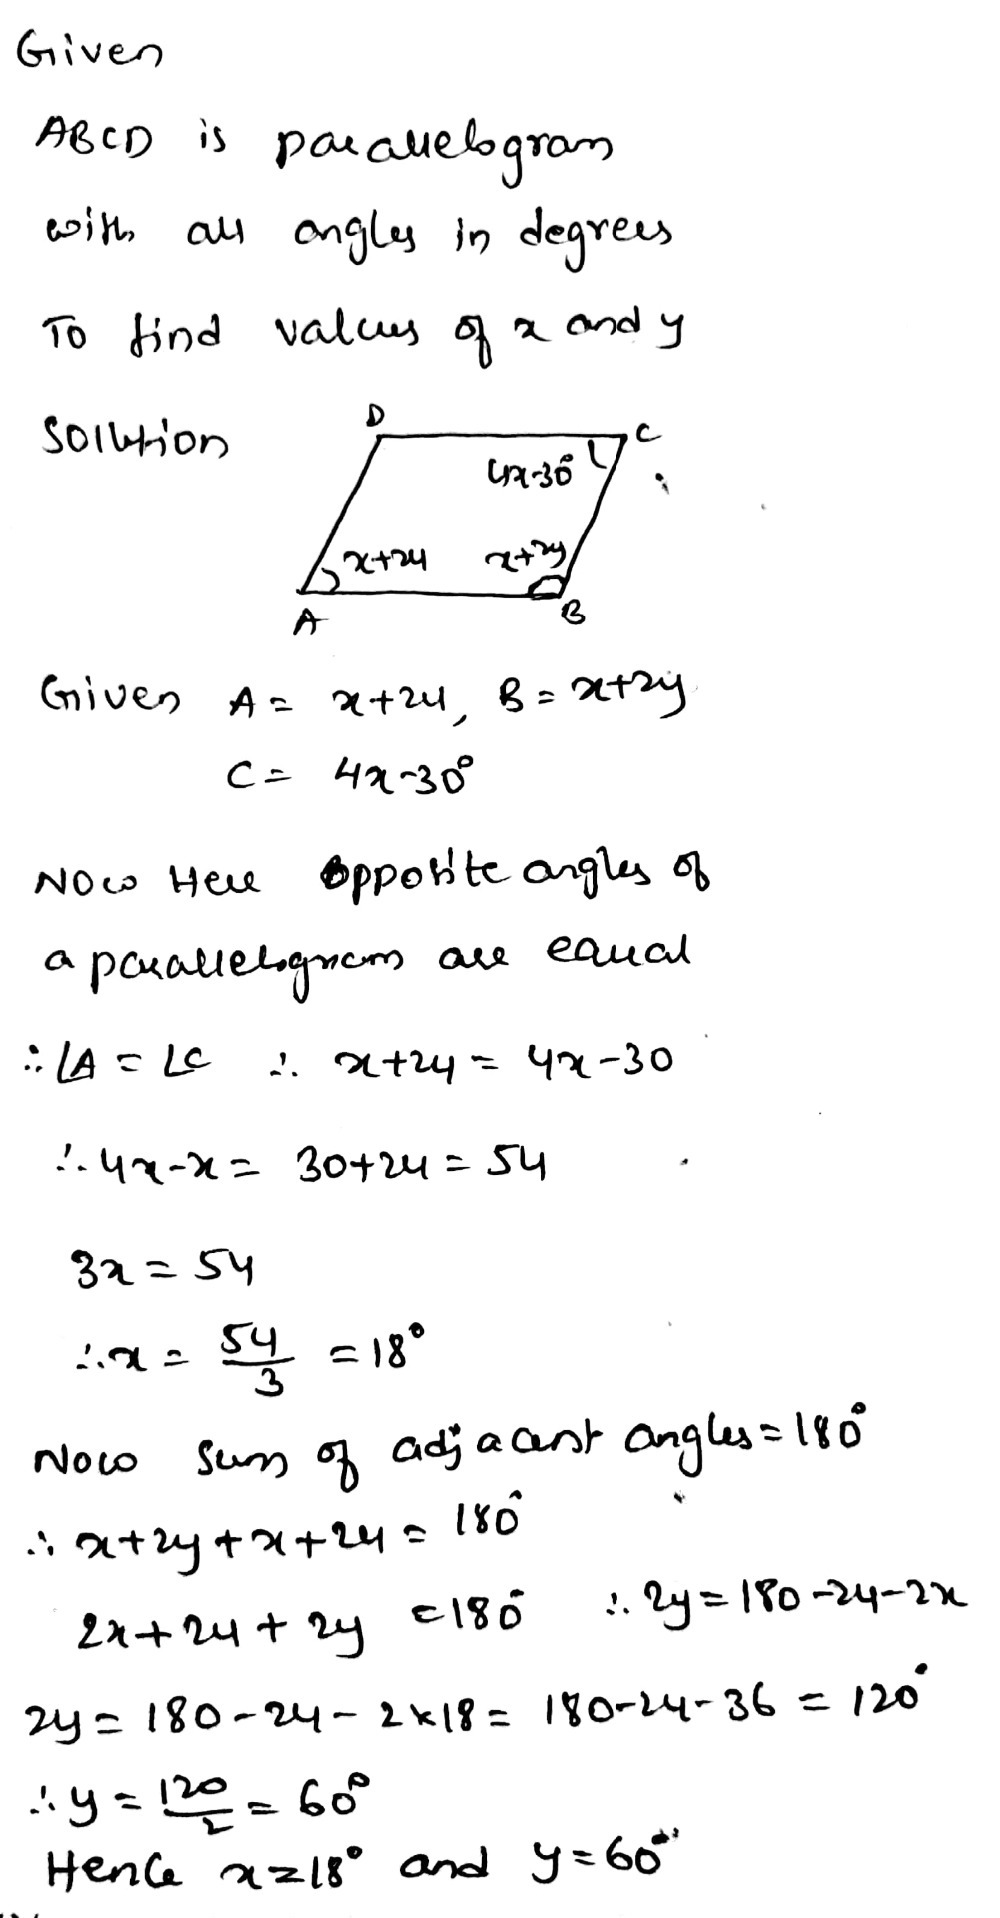 Given
ABCD is parallelogram
with all angles in degrees
To find values of x and y
Solution
D
C
4x-30°
x+24
x+2y
A
B
Given A = x+24, B = x+2y
C = 4x-30°
Now Here opposite angles of
a parallelogram are equal
∴ ∠A = ∠C ∴ x+24 = 4x-30
∴ 4x-x = 30+24 = 54
3x = 54
∴ x = 54/3 = 18°
Now sum of adjacent angles = 180°
∴ x+2y+x+24 = 180°
2x+24+2y = 180° ∴ 2y = 180-24-2x
2y = 180-24-2×18 = 180-24-36 = 120°
∴ y = 120/2 = 60°
Hence x=18° and y=60°